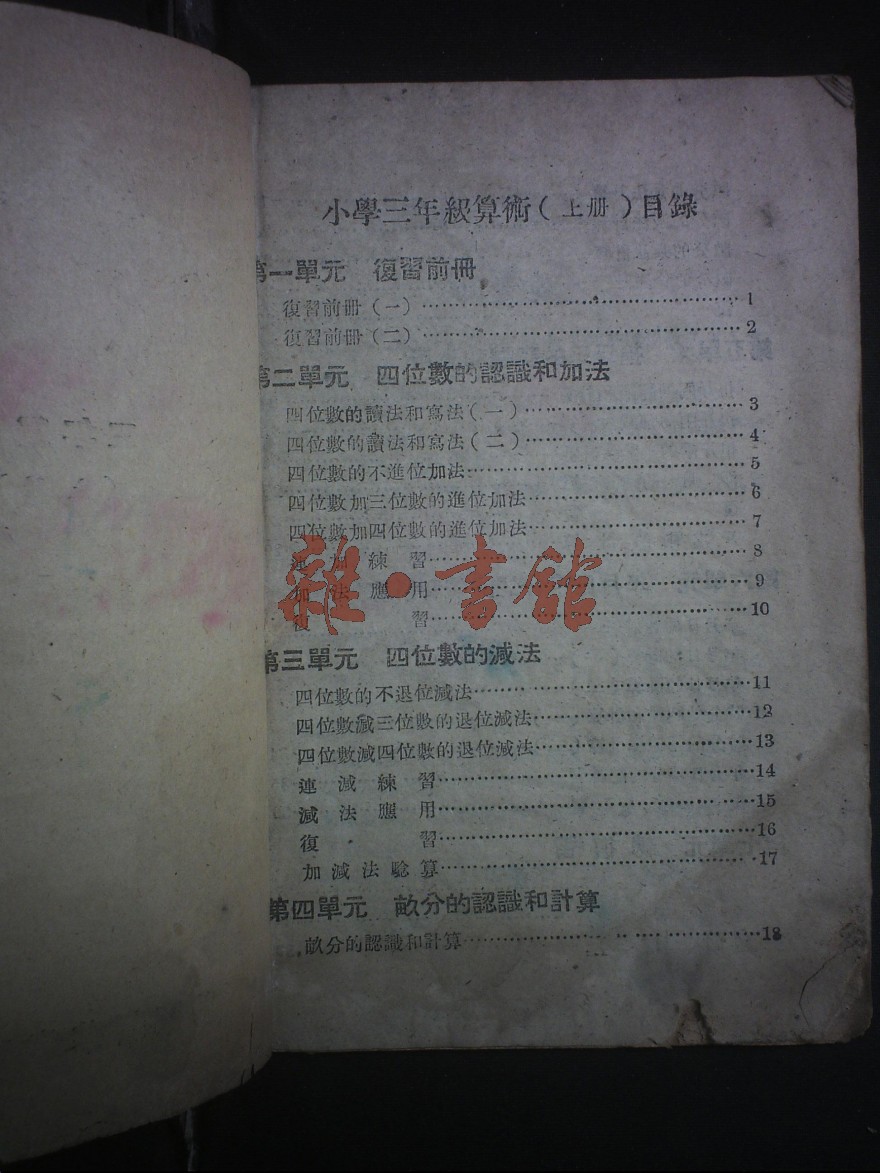 小學三年級算術（上册）目錄
第一單元 復習前冊
復習前冊（一）……1
復習前冊（二）……2
第二單元 四位數的認識和加法
四位數的讀法和寫法（一）……3
四位數的讀法和寫法（二）……4
四位數的不進位加法……5
四位數加三位數的進位加法……6
四位數加四位數的進位加法……7
連加練習……8
加法應用……9
復習……10
雜·書館
第三單元 四位數的減法
四位數的不退位減法……11
四位數減三位數的退位減法……12
四位數減四位數的退位減法……13
連減練習……14
減法應用……15
復習……16
加減法驗算……17
第四單元 畝分的認識和計算
畝分的認識和計算……18